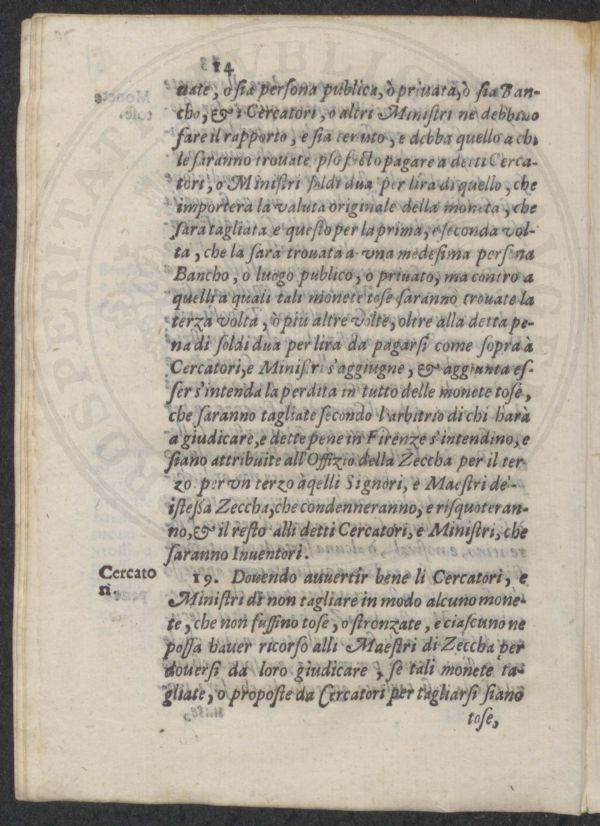 14
uate, o sia persona publica, ò priuata, ò sia Ban-
cho, & i Cercatori, o altri Ministri ne debbino
fare il rapporto, e sia tenuto, e debba quello a chi
le saranno trouate pso facto pagare a detti Cerca-
tori, o Ministri soldi dua per lira di quello, che
importerà la valuta originale della moneta, che
sara tagliata e questo per la prima, e seconda vol-
ta, che la sarà trouata a vna medesima persona
Bancho, o luogo publico, o priuato, ma contro a
quelli a quali tali monete tose saranno trouate la
terza volta, ò più altre volte, oltre alla detta pe-
na di soldi dua per lira da pagarsi come sopra à
Cercatori, e Ministri s'aggiugne, & aggiunta es-
ser s'intenda la perdita in tutto delle monete tose,
che saranno tagliate secondo l'arbitrio di chi harà
a giudicare, e dette pene in Firenze s'intendino, e
siano attribuite all'Offizio della Zeccha per il ter-
zo per vn terzo à qelli Signori, e Maestri de'
istessa Zeccha, che condenneranno, e risquoteran-
no, & il resto alli detti Cercatori, e Ministri, che
saranno Inuentori.
Cercato
ri.
19. Douendo auuertir bene li Cercatori, e
Ministri di non tagliare in modo alcuno mone-
te, che non fussino tose, o stronzate, e ciascuno ne
possa hauer ricorso alli Maestri di Zeccha per
douersi da loro giudicare, se tali monete ta-
gliate, o proposte da Cercatori per tagliarsi siano
tose,